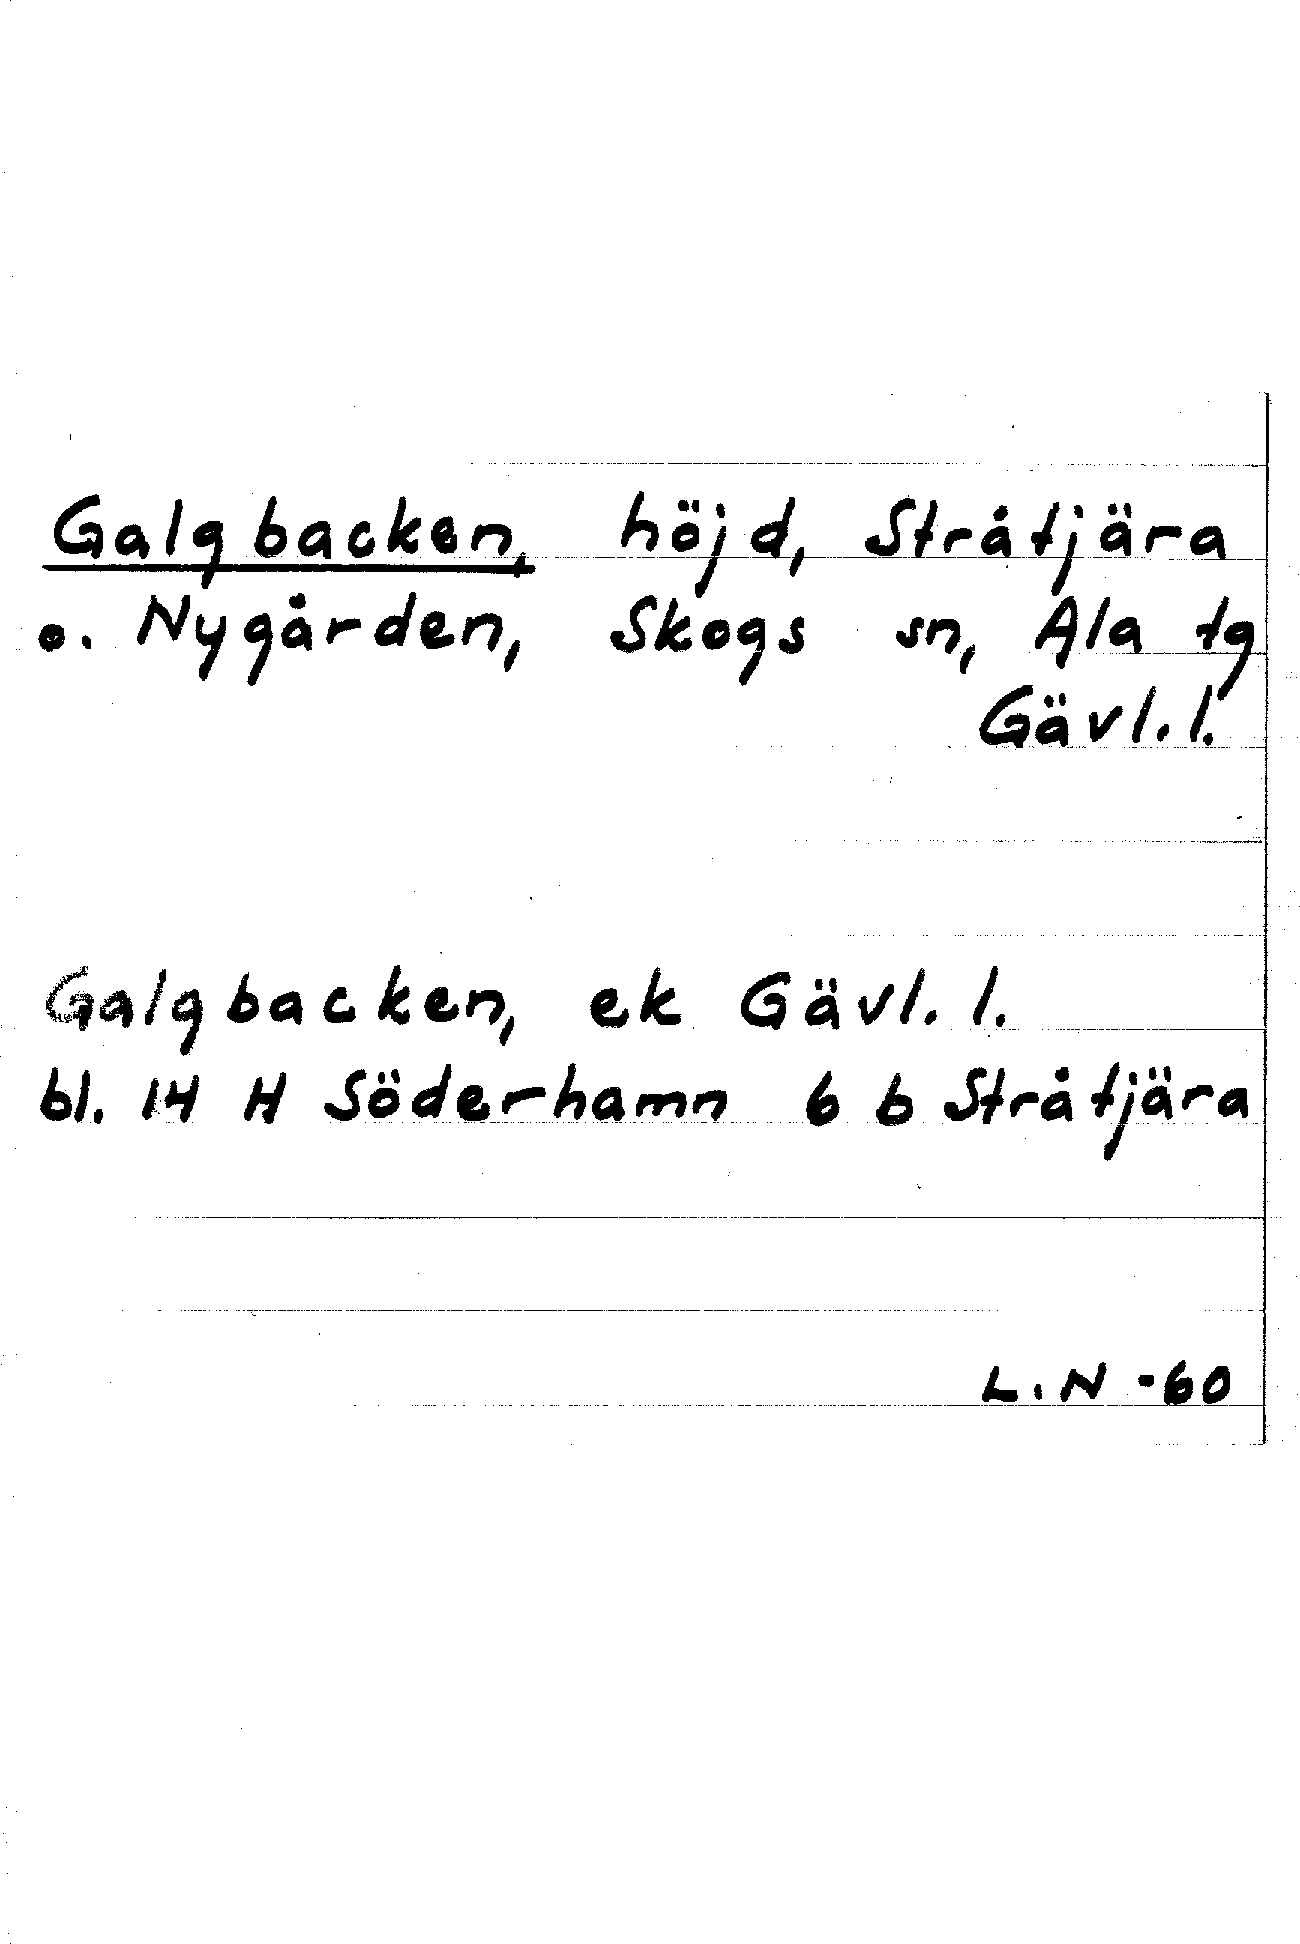 Galgbacken, höjd, Stråtjära
o. Nygården, Skogs sn, Ala tg
Gävl. l.
Galgbacken, ek Gävl. l.
bl. 14 H Söderhamn 6 b Stråtjära
L. N -60